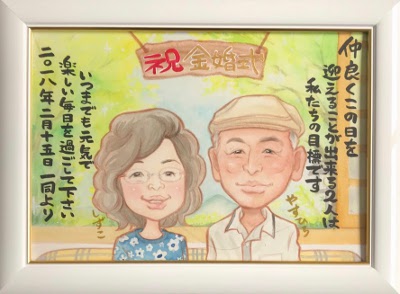 祝 金婚式
仲良くこの日を
迎えることが出来る2人は
私たちの目標です
いつまでも元気で
楽しい毎日を過ごして下さい
二〇一八年二月十五日 一同より
しずこ
やすひろ